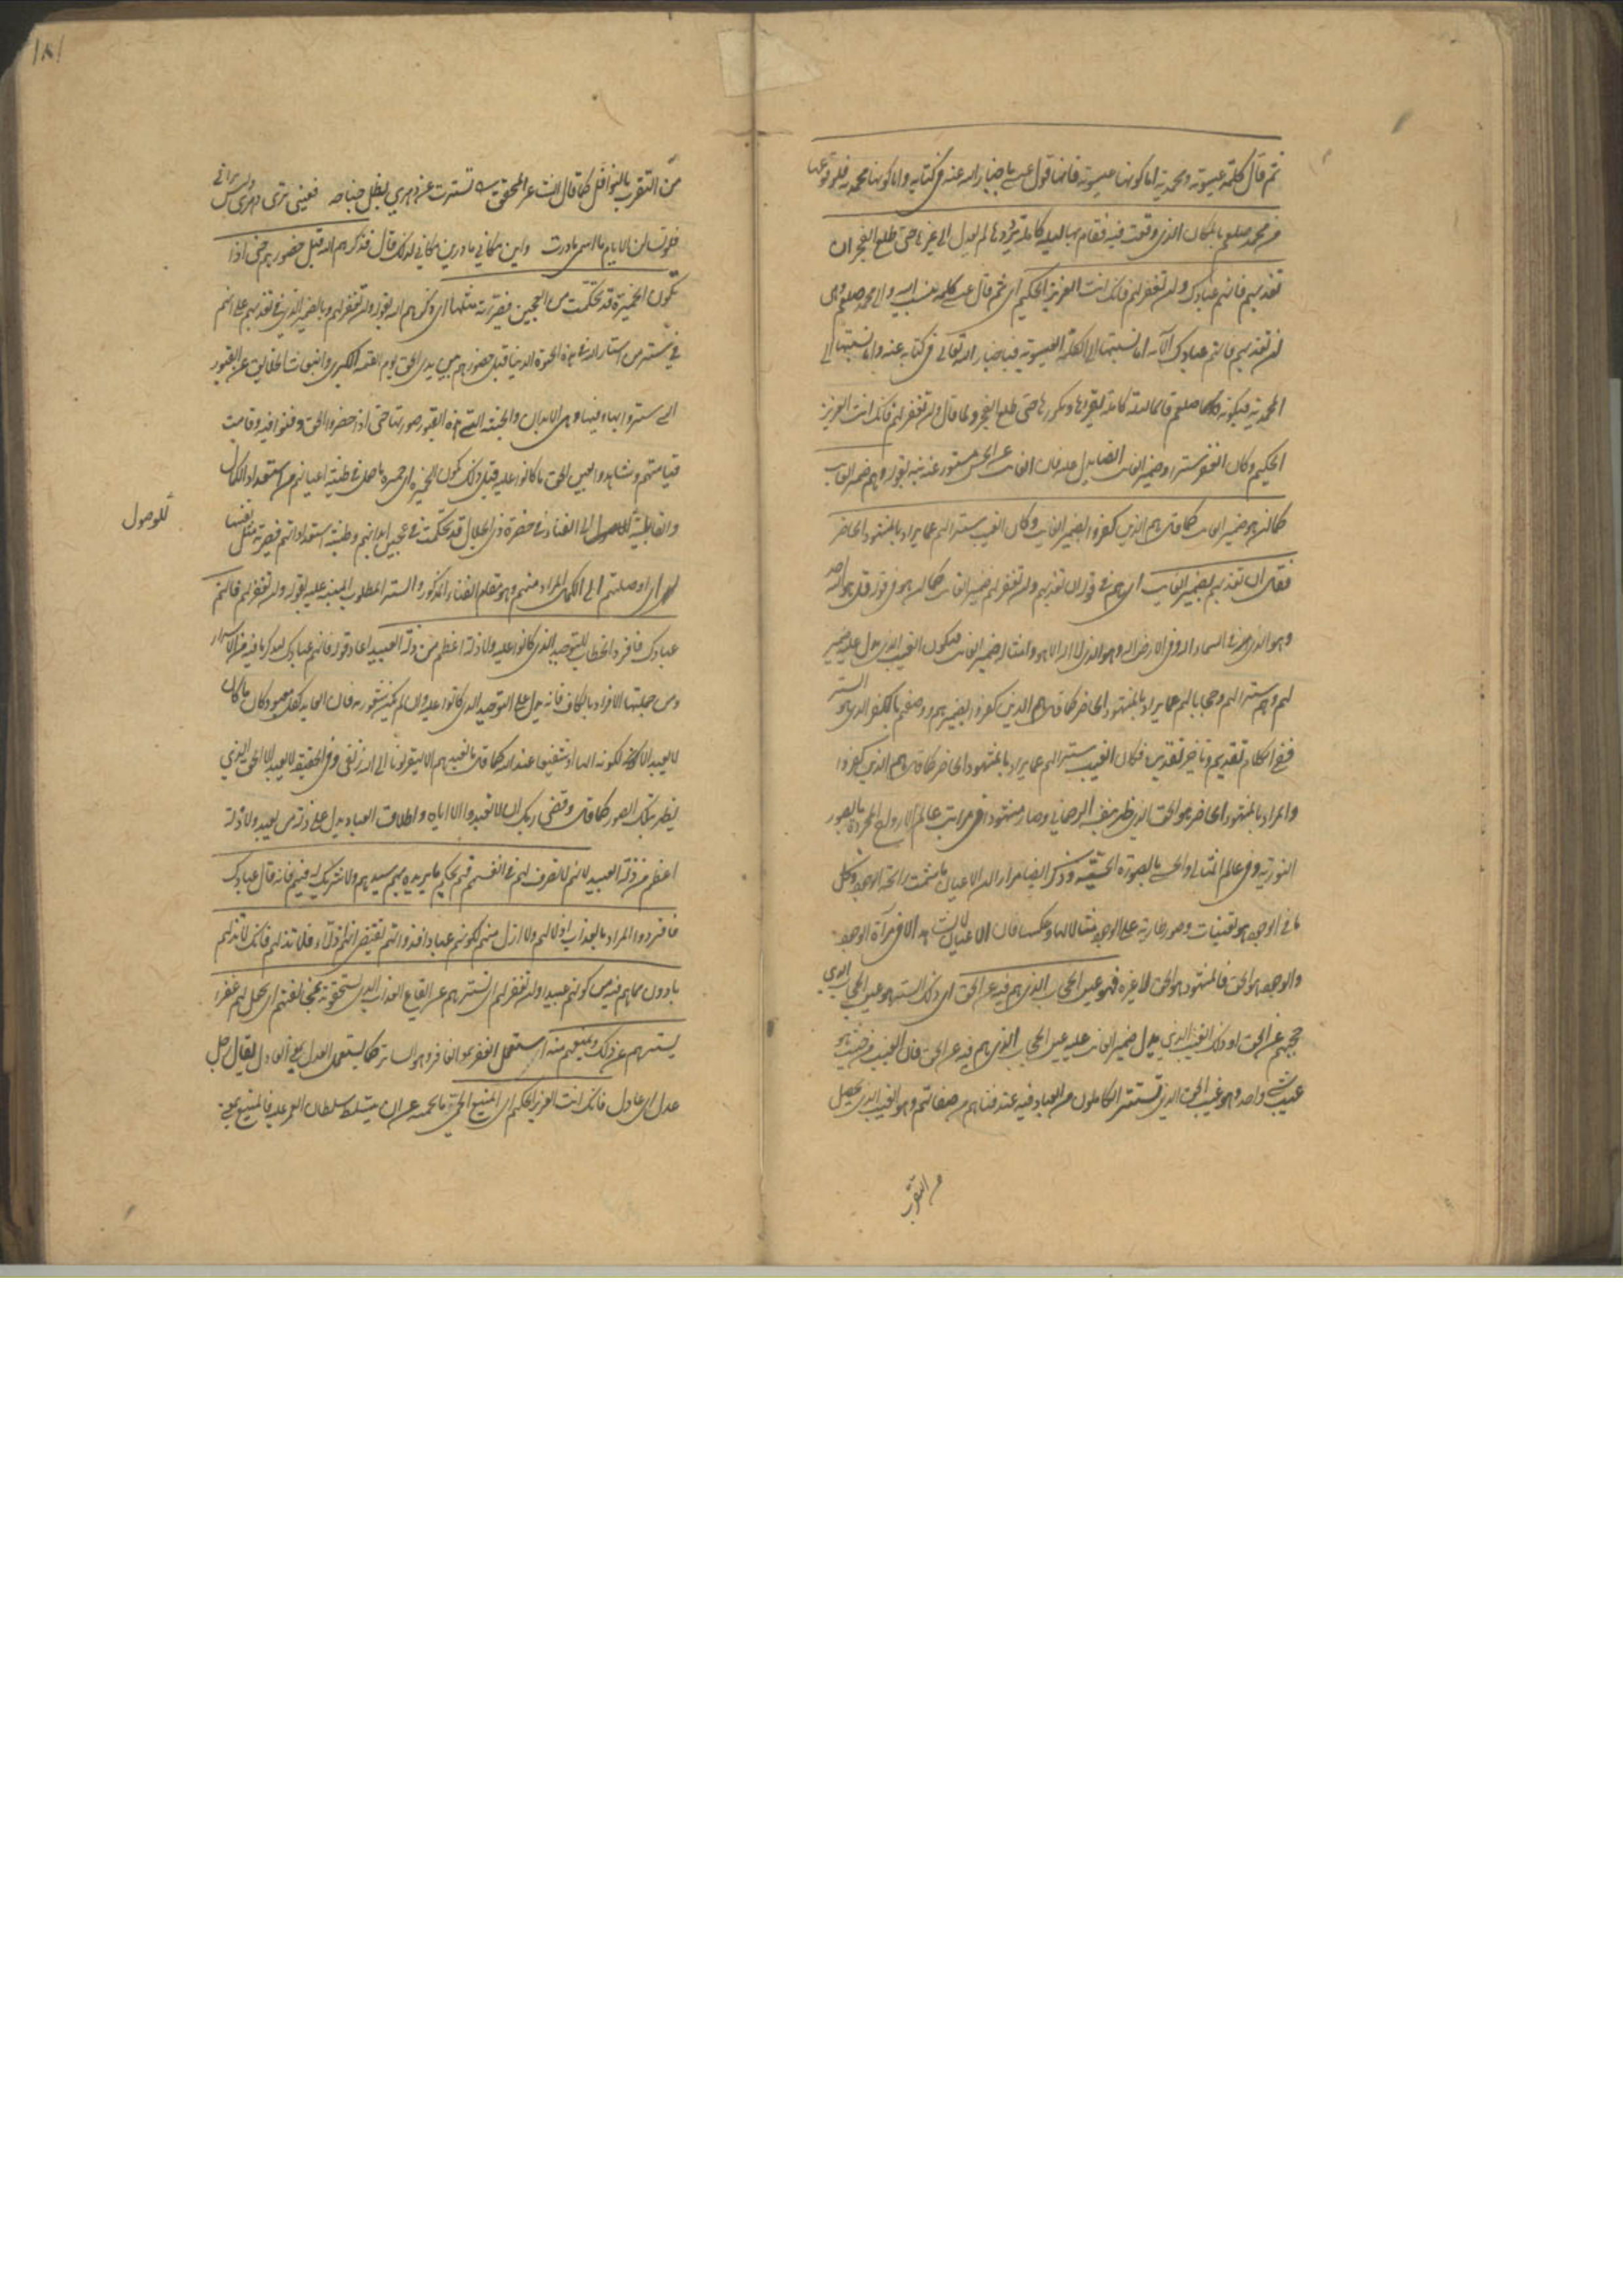 ثم قال كلمة عيسوية ومحمدية اما كونها عيسوية فانها قول عيسى باخبار الله عنه في كتابه واما كونها محمدية فلوقوعها
من محمد صلعم بالمكان الذي وقعت فيه فقام بها ليلة كاملة يرددها لم يعدل الى غيرها حتى طلع الفجر ان
تعذبهم فانهم عبادك وان تغفر لهم فانك انت العزيز الحكيم اى ثم قال عيسى كلمة ينسب اليه والى محمد صلعم وهى
ان تعذبهم فانهم عبادك الآية اما نسبتها الى الكلمة العيسوية فباخبار الله تعالى في كتابه عنه واما نسبتها الى
المحمدية فبكونه صلعم قام ليلة كاملة يقرءها ويكررها حتى طلع الفجر ولما قال وان تغفر لهم فانك انت العزيز
الحكيم وكان الغفر سترا وضمير الغائب ايضا يدل عليه فان الغائب عن الحس مستور عنه نبه بقوله وهم ضمير الغائب
كما ان هو ضمير الغائب كما قال هم الذين كفروا بضمير الغائب وكان الغيب سترا لهم عما يراد بالمشهود الحاضر
فقال ان تعذبهم بضمير الغائب اى هم في قوله ان تعذبهم وان تغفر لهم ضمير الغائب كما ان هو في قوله قل هو الله احد
وهو الذي في السماء اله وفي الارض اله وهو الذي لا اله الا هو وامثاله ضمير الغائب فيكون الغيب الذي يدل عليه ضمير
لهم وهم سترا لهم وحجابا لهم عما يراد بالمشهود الحاضر كما قال هم الذين كفروا بضمير هم ووصفهم بالكفر الذي هو الستر
ففي الكلام تقديم وتاخير تقديره فكان الغيب سترا لهم عما يراد بالمشهود الحاضر كما قال هم الذين كفروا
والمراد بالمشهود الحاضر هو الحق الذي ظهر بنفسه الرحماني وصار مشهودا في مراتب عالم الارواح المجردة بالصور
النورية وفي عالم المثالى والحسى بالصورة الحقيقية وذكر ايضا مرارا ان الاعيان ما شمت رائحة الوجود وكل
ما في الوجود هو تعينات وصور طارية على الوجود مثالا لها وعكسها فان الاعيان لا تشاهد الا في مرآة الوجود
والوجود هو الحق فالمشهود هو الحق لا غيره فهو عين الحجاب الذي هم فيه عن الحق اى ذلك الستر هو عين الحجاب الذي
حجبهم عن الحق او ذلك الغيب الذي يدل ضمير الغائب عليه عين الحجاب الذي هم فيه عن الحق فان الغيب من حيث هو
غيب شئ واحد وهو غيب الحق الذي تستتر الكاملون من العباد فيه عند فنائهم من صفاتهم وهو الغيب الذي يحصل
من التقرب
١٨١
من التقرب بالنوافل كما قال الشاعر المحقق تسترت عن دهري بظل جناحه فعيني ترى دهري وليس يراني
فلو تسأل الايام ما اسمي ما درت واين مكاني ما درين مكاني لذلك قال فذكرهم الله قبل حضورهم حتى اذا
تكون الخميرة قد تحكمت من العجين فصيرته مثلها اى ذكرهم الله بقوله وان تغفر لهم وبالضمير الذي في تعذبهم على انهم
في ستر من استار الله في هذه الحيوة الدنيا قبل حضورهم بين يدى الحق يوم القيمة الكبرى وانبعاث الخلايق عن القبور
التي ستروا بها وفيها وهى الابدان والجثة التي هذه القبور صورتها حتى اذا حضروا الحق وفنوا فيه وقامت
قيامتهم وشاهدوا بعين الحق ما كانوا عليه قبل ذلك تكون الخميرة اى خميرة ما حصل في طينة اعيانهم من استعداد الكمال
والقابلية للوصول الى الفناء في حضرة ذى الجلال قد تحكمت في عجين ابدانهم وطينة استعداداتهم فصيرته مثل نفسها
اى اوصلتهم الى الكمال المراد منهم وهو مقام الفناء المذكور والستر المطلوب المنبه عليه بقوله وان تغفر لهم فانهم
عبادك فافرد الخطاب للتوحيد الذي كانوا عليه ولا ذلة اعظم من ذلة العبيد اعاد قوله فانهم عبادك ليذكر ما فيه من الاسرار
ومن جملتها الافراد بالكاف فانه يدل على التوحيد الذي كانوا عليه وان لم يكن بشعور به فان العابد لكل معبود كان ما كان
لا يعبد الا لكونه الها او شفيعا عند الله كما قال ما نعبدهم الا ليقربونا الى الله زلفى وفي الحقيقة لا يعبد الا الحق الذي
يظهر بتلك الصور كما قال وقضى ربك ان لا تعبدوا الا اياه واطلاق العباد يدل على ذلة من يعبد ولا ذلة
اعظم من ذلة العبيد لانهم لا تصرف لهم في انفسهم فهم بحكم ما يريده بهم سيدهم ولا شريك له فيهم فانه قال عبادك
فافرد والمراد بالعذاب اذلالهم ولا اذل منهم لكونهم عبادا فذواتهم تقتضى انهم اذلاء فلا تذلهم فانك لا تذلهم
بادون مما هم فيه من كونهم عبيدا وان تغفر لهم اى تسترهم عن ايقاع العذاب الذي يستحقونه بمخالفتهم اى تجعل لهم غفرا
يسترهم عن ذلك ويمنعهم منه استعمل الغفر بمعنى الغافر وهو الساتر كما يستعمل العدل بمعنى العادل يقال رجل
عدل اى عادل فانك انت العزيز الحكيم اى المنيع الحمى ما يحمه عن ان يتسلط سلطان الغير عليه فالمنيع بمعنى
للوصول